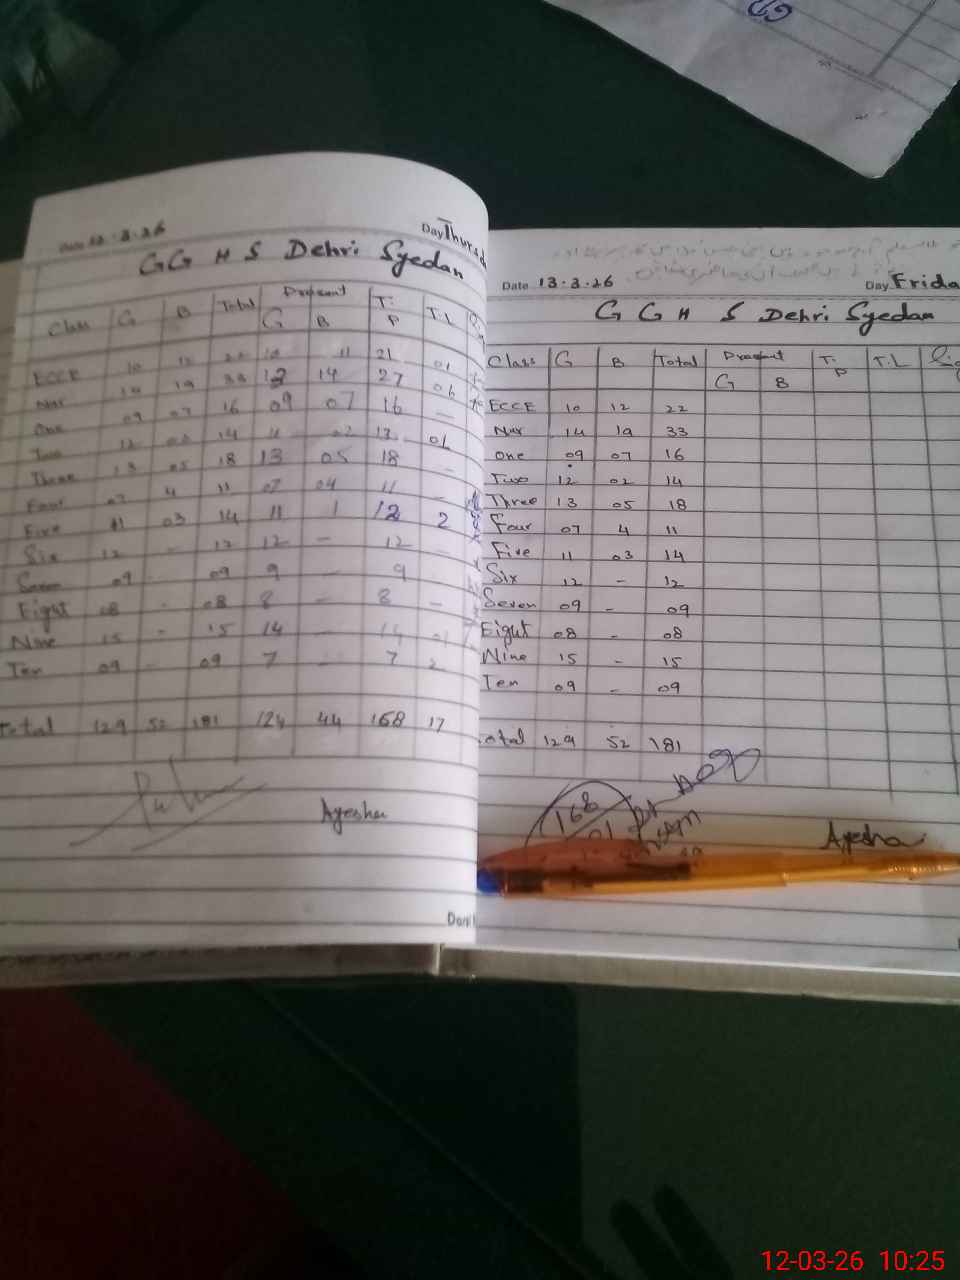 Date 12.3.26 Day Thursd
GG H S Dehri Syedan
Class G B Total Present T: T.L
G B P
ECCE 10 12 22 10 11 21 01
Nur 14 19 33 13 14 27 06
One 09 07 16 09 07 16 —
Two 12 02 14 11 02 13 01
Three 13 05 18 13 05 18 -
Four 07 4 11 07 04 11 -
Five 11 03 14 11 1 12 2
Six 12 - 12 12 - 12 -
Seven 09 - 09 9 - 9
Eight 08 - 08 8 - 8 -
Nine 15 - 15 14 - 14 01
Ten 09 - 09 7 - 7 2
Total 129 52 181 124 44 168 17
Ayesha
Date 13.3.26 Day Frida
G G H S Dehri Syedan
Class G B Total Present T: T.L Sig
G B P
ECCE 10 12 22
Nur 14 19 33
One 09 07 16
Two 12 02 14
Three 13 05 18
Four 07 4 11
Five 11 03 14
Six 12 - 12
Seven 09 - 09
Eight 08 - 08
Nine 15 - 15
Ten 09 - 09
otal 129 52 181
168
Ayesha
12-03-26 10:25